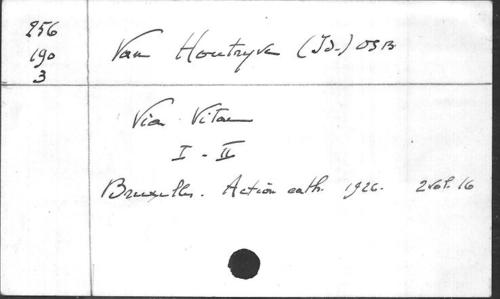 256
190
3
Van Houtryve (Id.) OSB
Via Vitae
I - II
Bruxelles. Action cath. 1926. 2 vol. 16